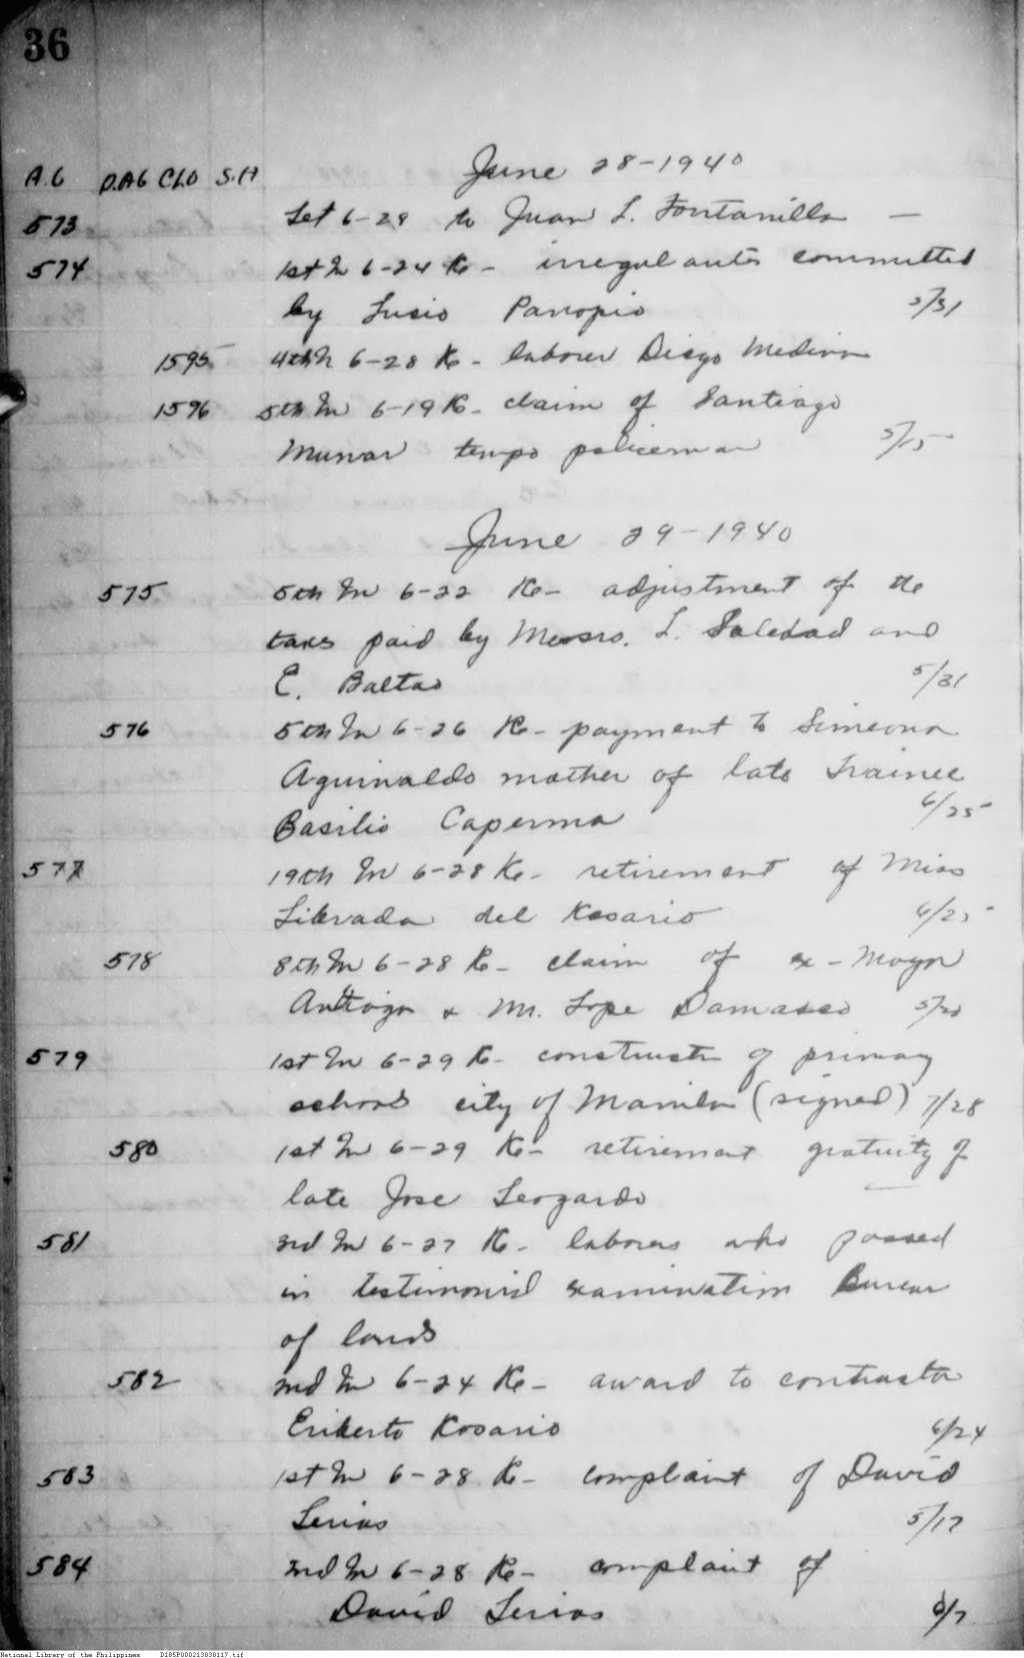 36
June 28-1940
A.G D.AG CLO S.H
573 Let 6-28 to Juan L. Fontanilla —
574 1st In 6-24 Re - irregularities committed
by Lucio Panopio 5/31
1595 4th In 6-28 Re - laborer Diego Medina
1596 5th In 6-19 Re - claim of Santiago
Munar tempo policeman 5/15
June 29-1940
575 5th In 6-22 Re - adjustment of the
taxes paid by Messrs. L. Soledad and
E. Baltao 5/31
576 5th In 6-26 Re - payment to Simeona
Aguinaldo mother of late Trainee
Basilio Caperma 6/25
577 19th In 6-28 Re - retirement of Miss
Librada del Rosario 6/25
578 8th In 6-28 Re - claim of ex-Mayor
& Mr. Lope Damasco 5/20
579 1st In 6-29 Re - constructn of primary
school city of Manila (signed) 7/28
580 1st In 6-29 Re - retirement gratuity of
late Jose Leogardo
581 3rd In 6-27 Re - laborers who passed
in testimonial examination Bureau
of lands
582 2nd In 6-24 Re - award to contractor
Eriberto Rosario 6/24
583 1st In 6-28 Re - complaint of David
Lerias 5/17
584 2nd In 6-28 Re - complaint of
David Lerias 6/7
National Library of the Philippines D185P000213830117.tif